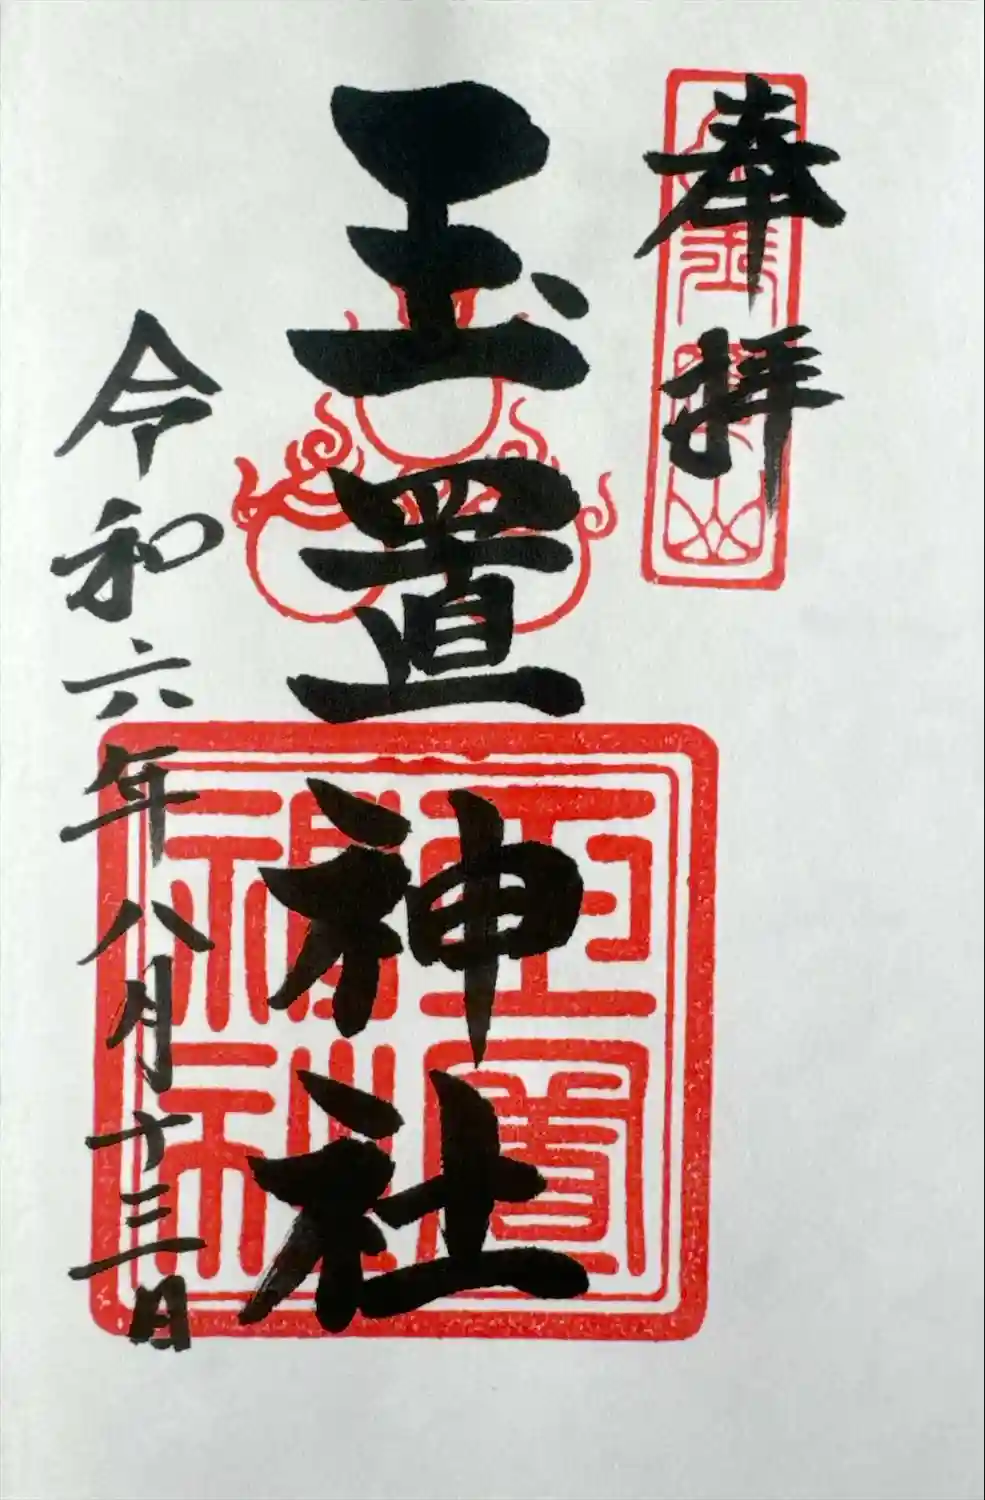 奉拝
玉置神社
玉置神社
令和六年八月十三日